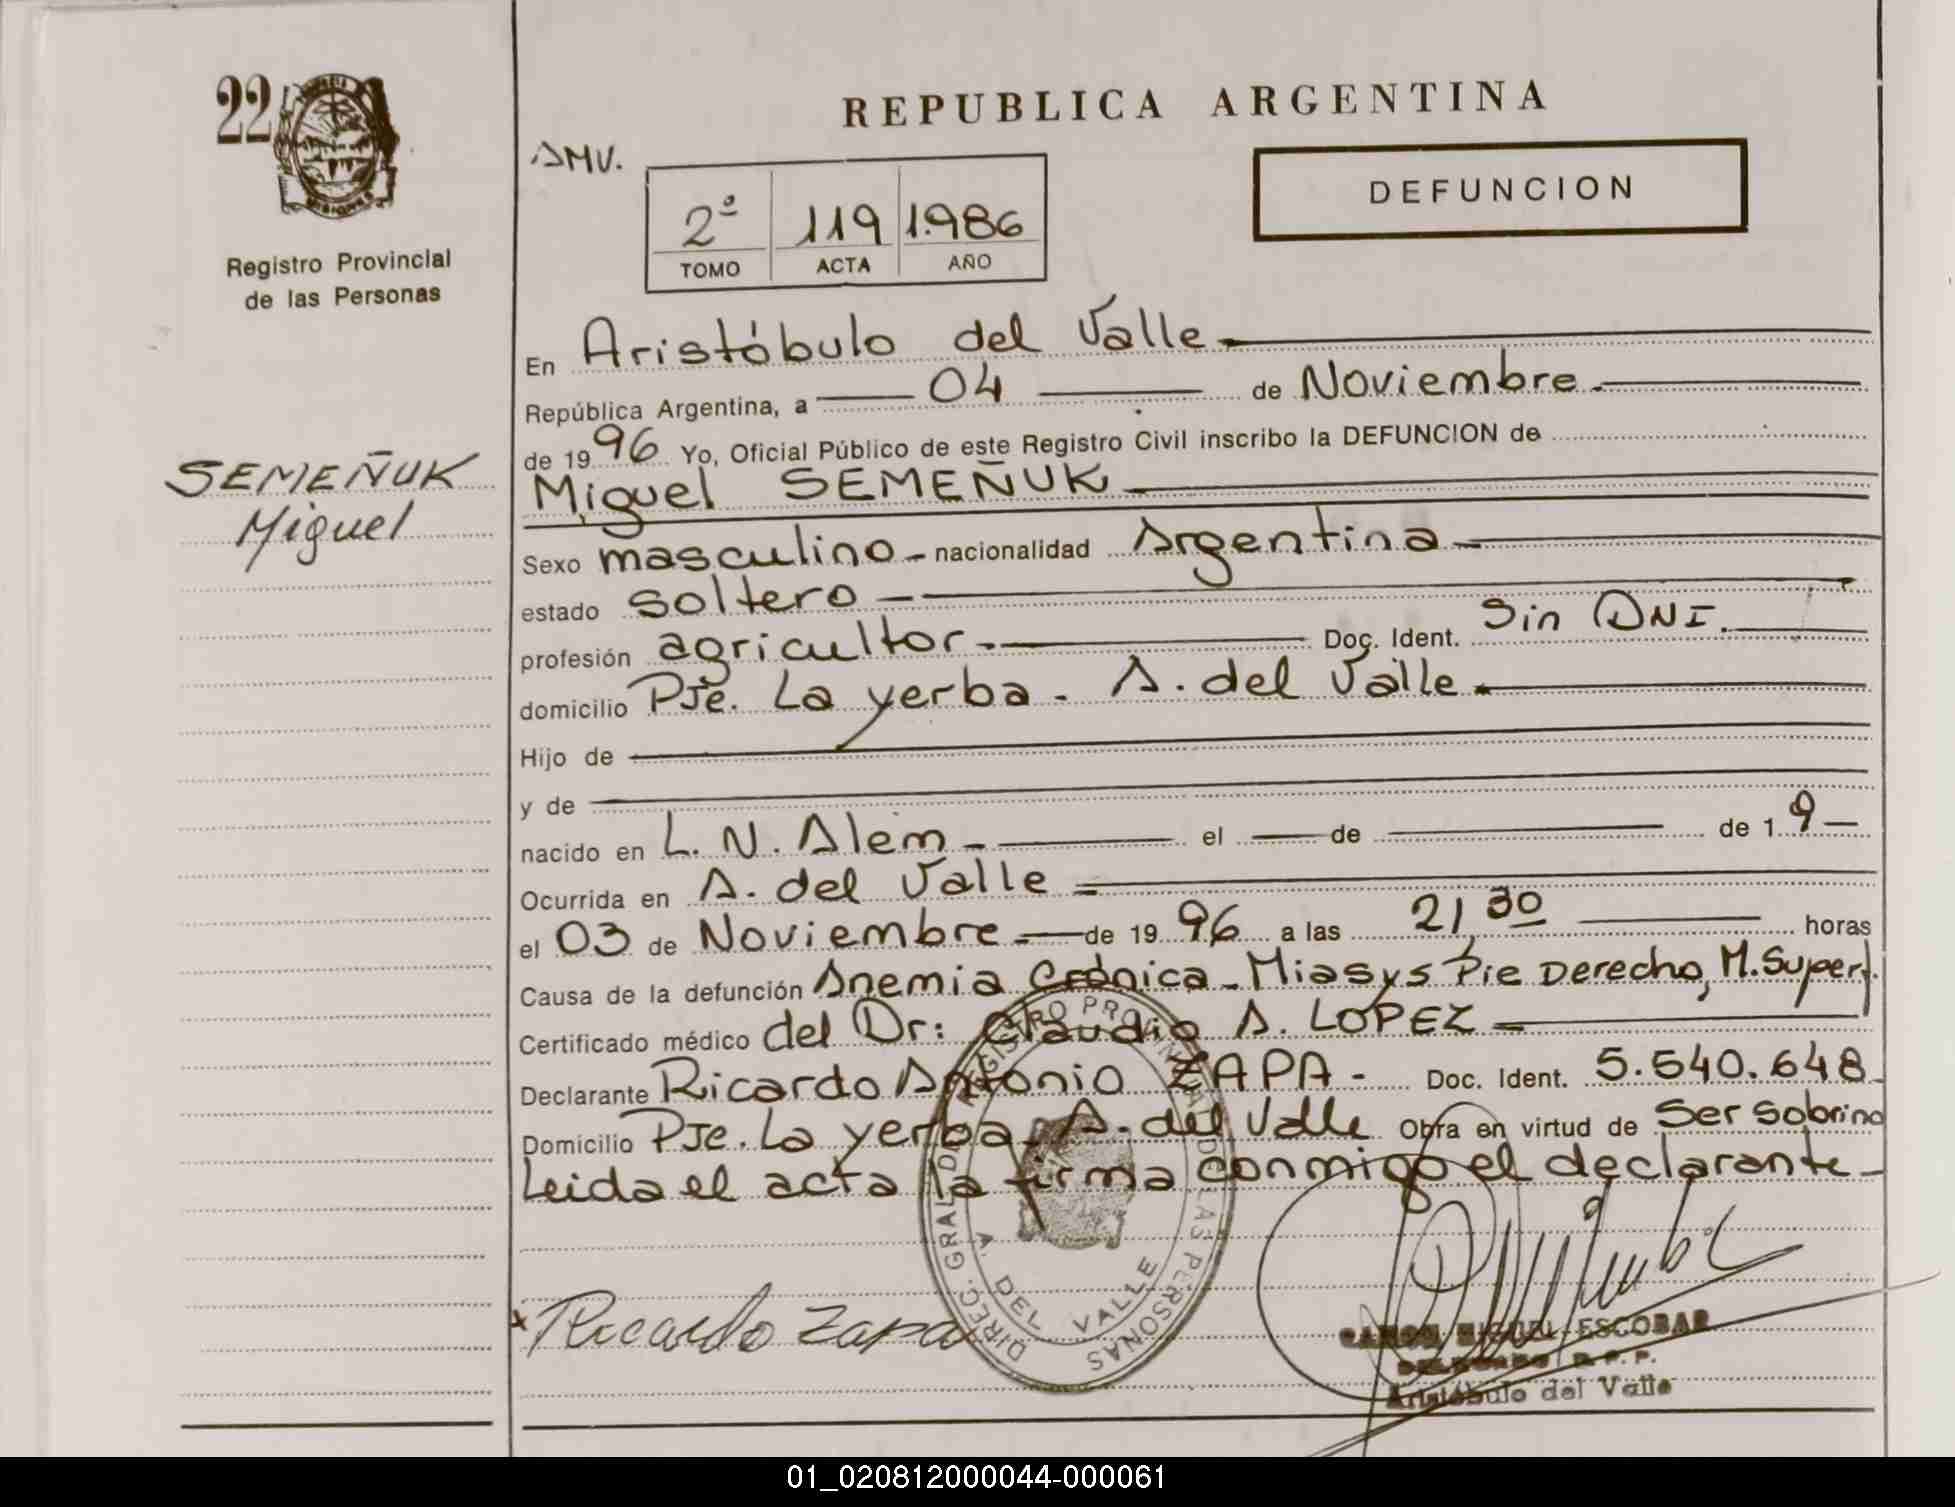 22
Registro Provincial
de las Personas
SEMEÑUK
Miguel
REPUBLICA ARGENTINA
AMV.
2º 119 1.986
TOMO ACTA AÑO
DEFUNCION
En Aristóbulo del Valle
República Argentina, a 04 de Noviembre
de 1996 Yo, Oficial Público de este Registro Civil inscribo la DEFUNCION de
Miguel SEMEÑUK
Sexo masculino nacionalidad Argentina
estado soltero
profesión agricultor Doc. Ident. Sin DNI.
domicilio Pje. La yerba - A. del Valle
Hijo de
y de
nacido en L. N. Alem el de de 19
Ocurrida en A. del Valle
el 03 de Noviembre de 1996 a las 21,30 horas
Causa de la defunción Anemia Crónica - Miasys Pie Derecho, M. Superf.
Certificado médico del Dr: Claudio A. LOPEZ
Declarante Ricardo Antonio ZAPA - Doc. Ident. 5.540.648
Domicilio Pje. La yerba - A. del Valle Obra en virtud de Ser Sobrino
Leida el acta la firma conmigo el declarante
DIREC. GRAL. DE REGISTRO PROVINCIAL DE LAS PERSONAS
A. DEL VALLE
Ricardo Zapa
MIGUEL ESCOBAR
DELEGADO R.P.P.
Aristóbulo del Valle
01_020812000044-000061